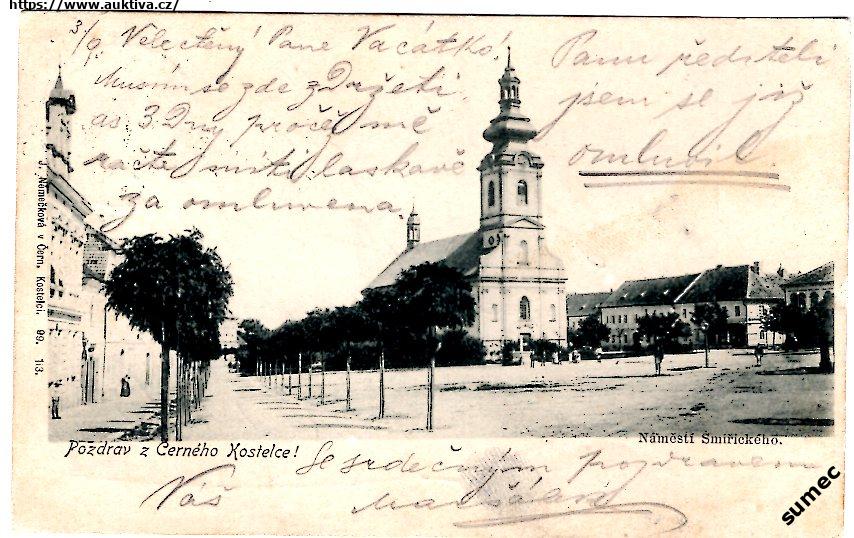 https://www.auktiva.cz/
3/9 Velectěný Pane Vacátko!
Musím se zde zdržeti
as 3 Dny pročež mě
račte míti laskavě
za omluvena.
Panu řediteli
jsem se již
omluvil.
J. Němečková v Čern. Kostelci. 99. 13.
Pozdrav z Černého Kostelce!
Náměstí Smiřického.
Se srdečným pozdravem
Váš
sumec